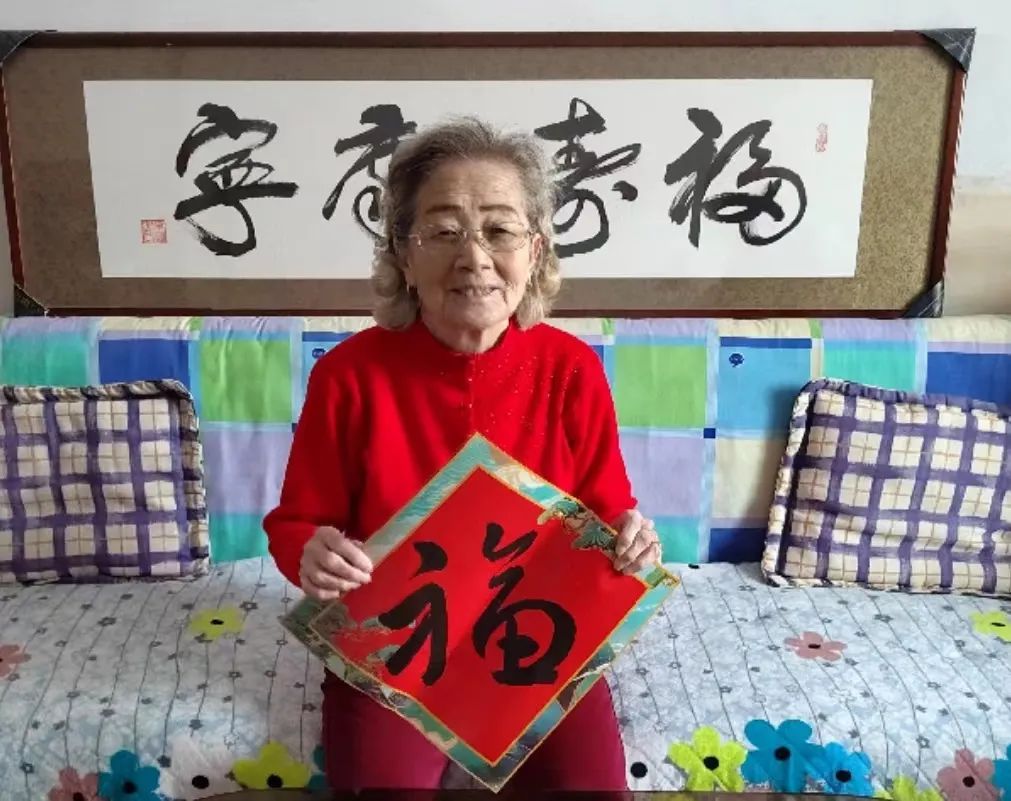 福寿康寧
福